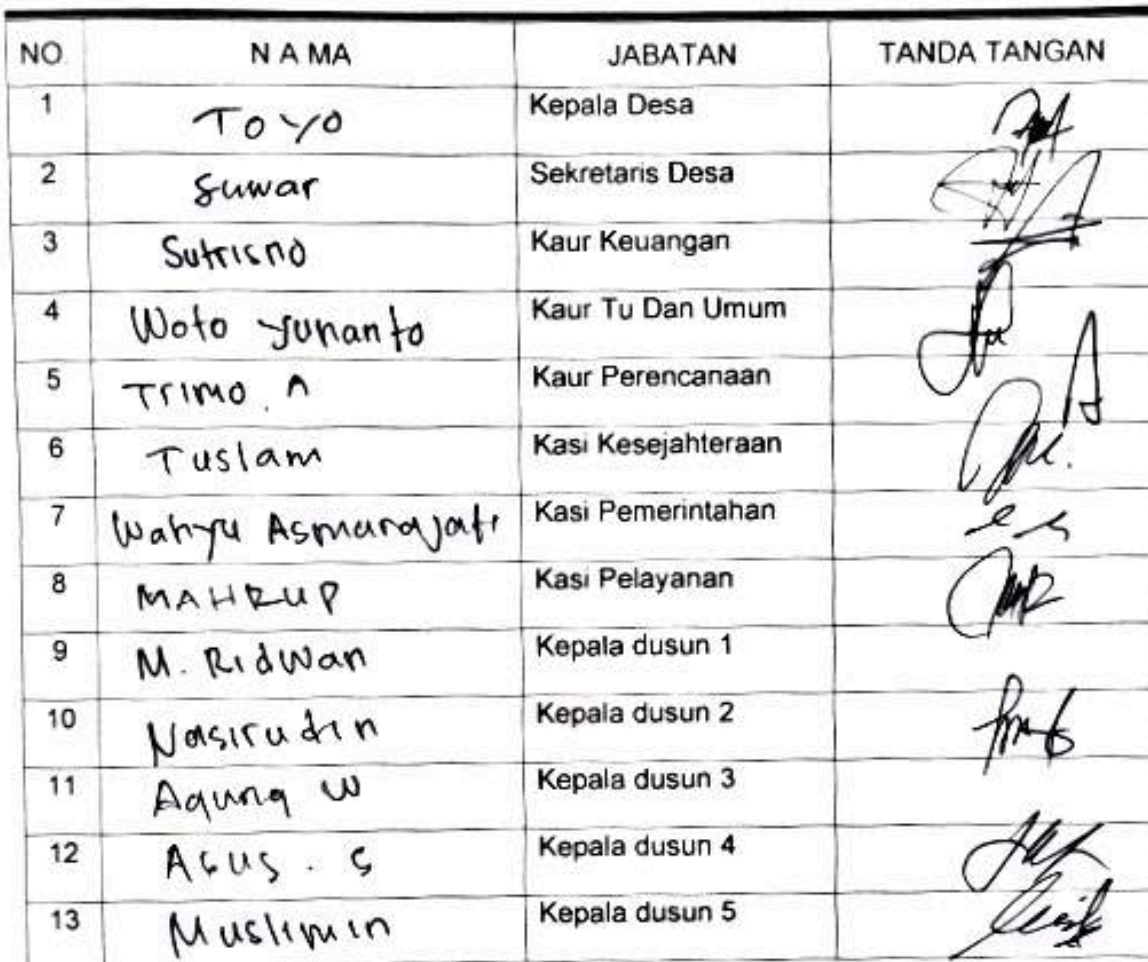 NO. N A MA JABATAN TANDA TANGAN
1 Toyo Kepala Desa
2 Suwar Sekretaris Desa
3 Sutrisno Kaur Keuangan
4 Woto Yunanto Kaur Tu Dan Umum
5 Trimo. A Kaur Perencanaan
6 Tuslam Kasi Kesejahteraan
7 Wahyu Asmarajati Kasi Pemerintahan
8 MAHRUP Kasi Pelayanan
9 M. Ridwan Kepala dusun 1
10 Nasirudin Kepala dusun 2
11 Agung W Kepala dusun 3
12 Agus. S Kepala dusun 4
13 Muslimin Kepala dusun 5